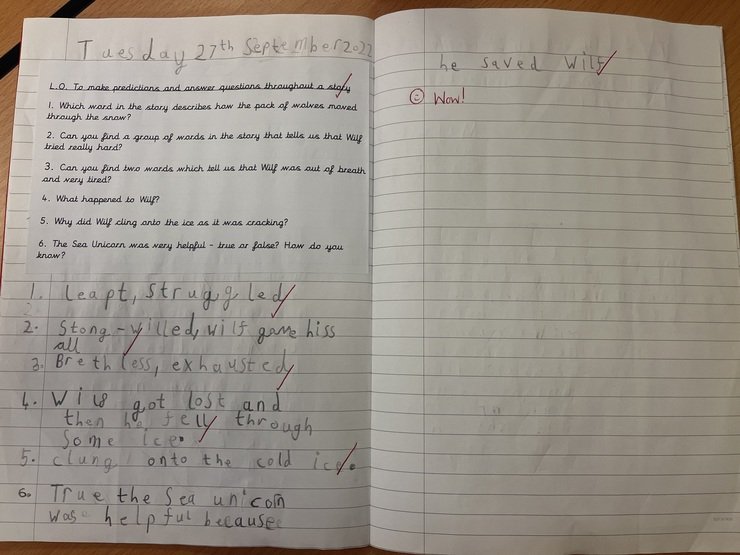 Tuesday 27th September 2022
L.O. To make predictions and answer questions throughout a story
1. Which word in the story describes how the pack of wolves moved
through the snow?
2. Can you find a group of words in the story that tells us that Wilf
tried really hard?
3. Can you find two words which tell us that Wilf was out of breath
and very tired?
4. What happened to Wilf?
5. Why did Wilf cling onto the ice as it was cracking?
6. The Sea Unicorn was very helpful - true or false? How do you
know?
1. leapt, struggled
2. Stong-willed, wilf gave hiss
all
3. Breathless, exhausted
4. Wilf got lost and
then he fell through
Some ice.
5. clung onto the cold ice.
6. True the Sea unicorn
was helpful because
he saved Wilf
Wow!